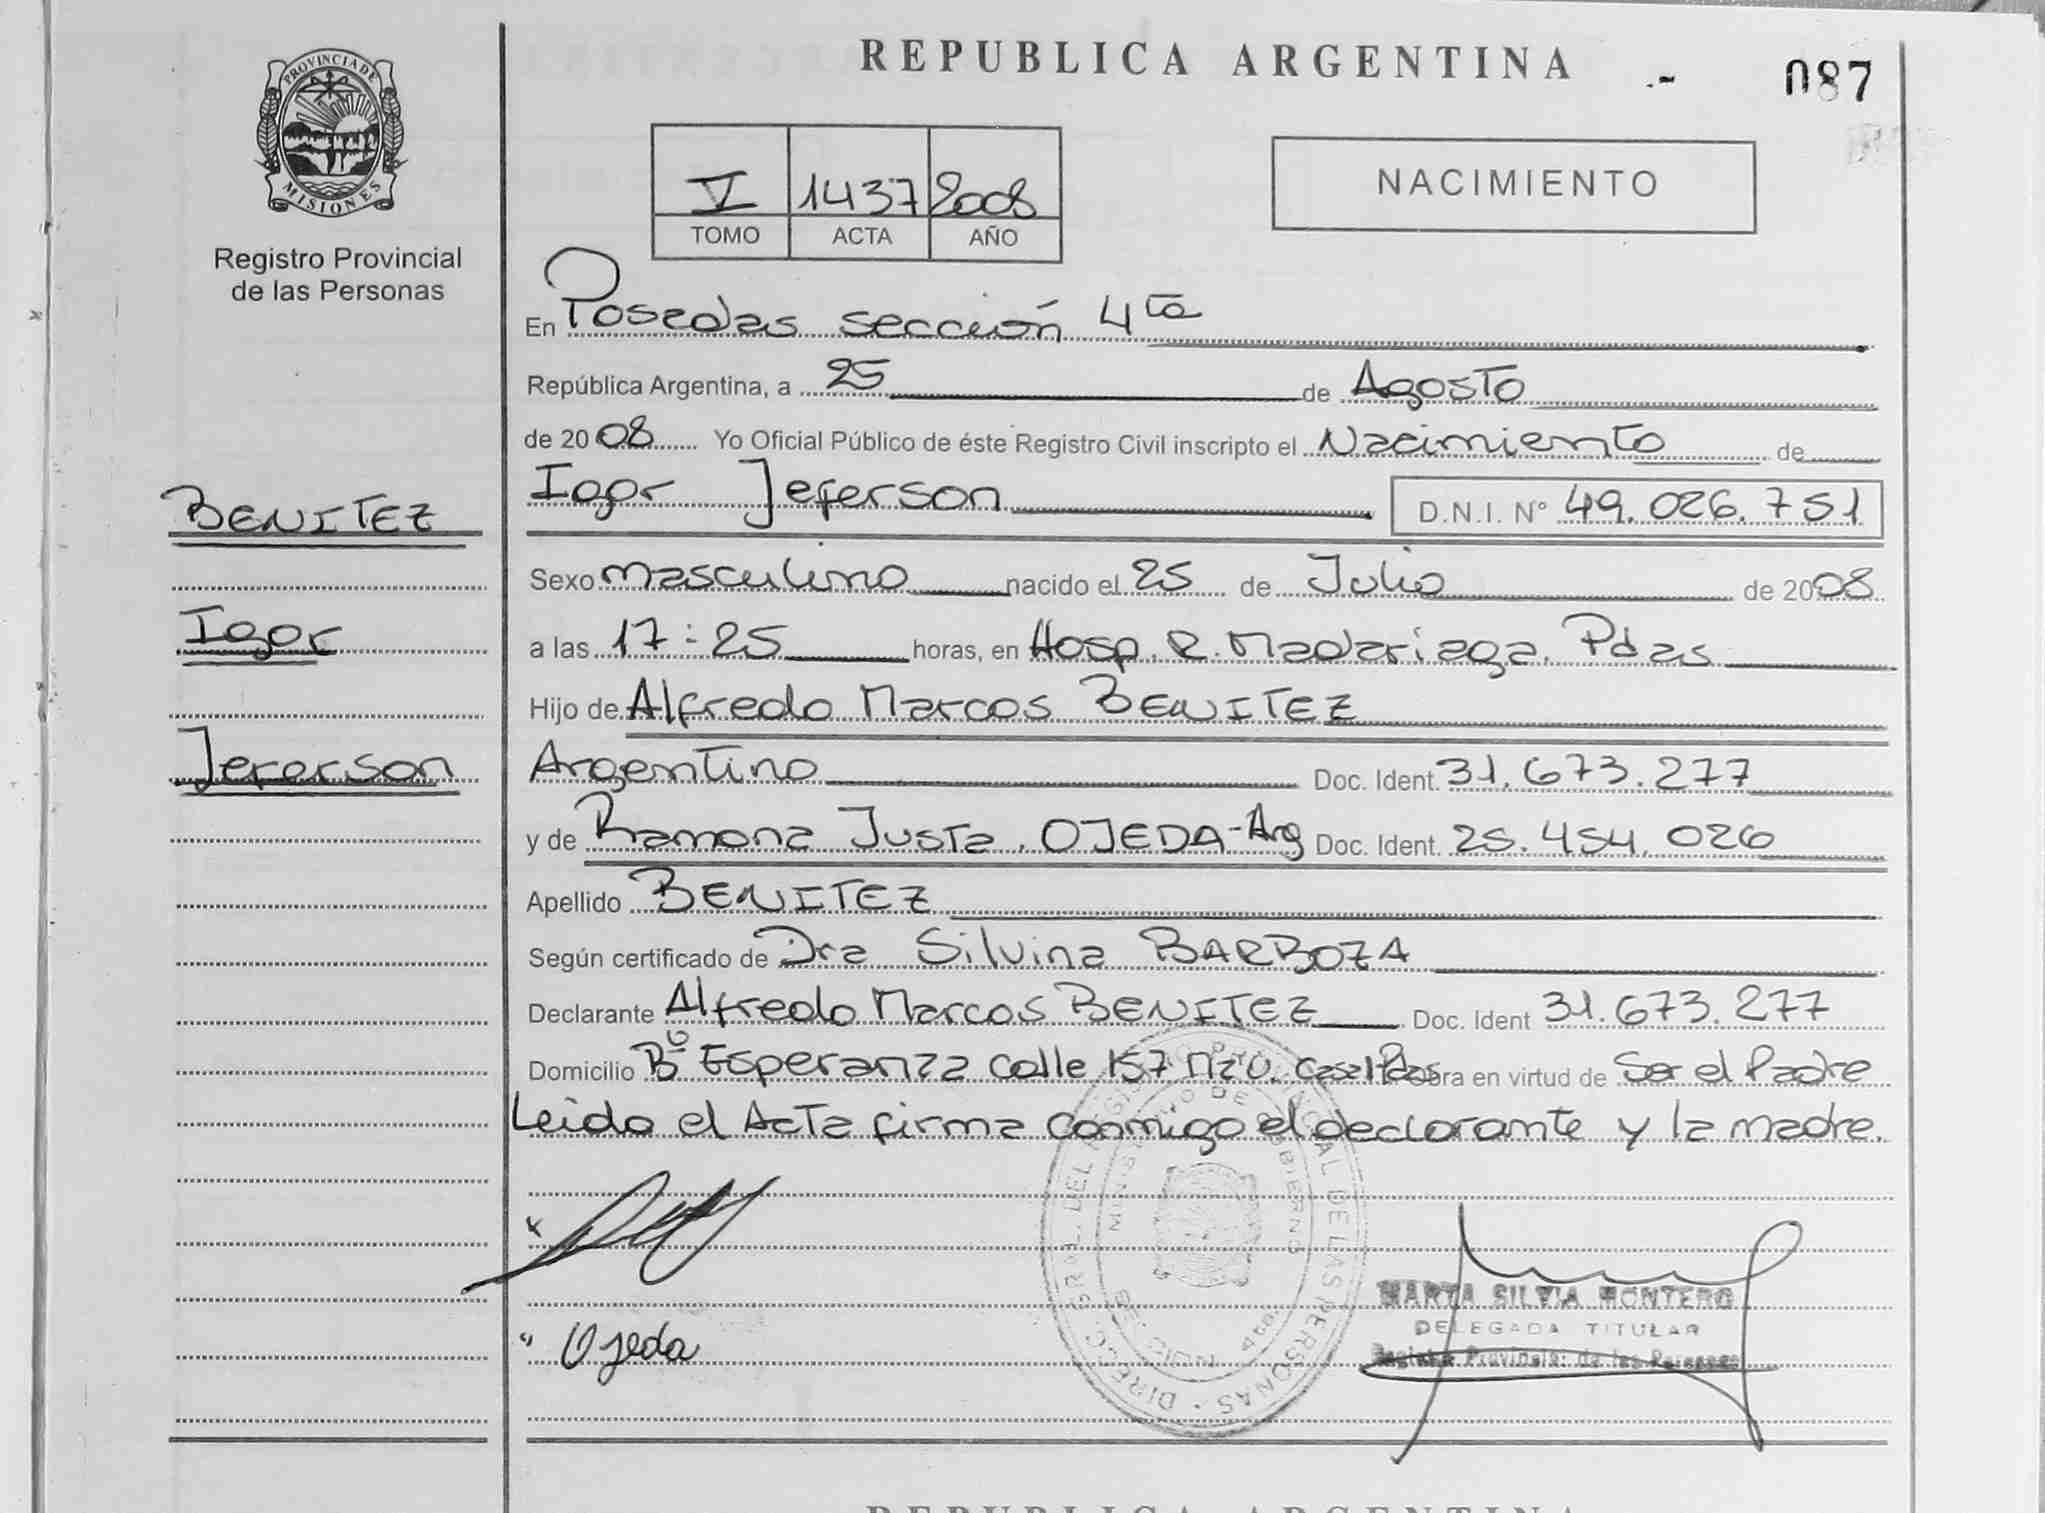 REPUBLICA ARGENTINA
087
PROVINCIA DE
MISIONES
Registro Provincial
de las Personas
V 1437 2008
TOMO ACTA AÑO
NACIMIENTO
En Posadas sección 4ta
República Argentina, a 25 de Agosto
de 2008 Yo Oficial Público de éste Registro Civil inscripto el Nacimiento de
Igor Jeferson D.N.I. N° 49.026.751
BENITEZ
Sexo masculino nacido el 25 de Julio de 2008
Igor
a las 17:25 horas, en Hosp. R. Madariaga. Pdas
Hijo de Alfredo Marcos BENITEZ
Jeferson
Argentino Doc. Ident. 31.673.277
y de Ramona Justa. OJEDA-Arg Doc. Ident. 25.454.026
Apellido BENITEZ
Según certificado de Dra Silvina BARBOZA
Declarante Alfredo Marcos BENITEZ Doc. Ident 31.673.277
Domicilio Bº Esperanza calle 157 Mz U. Obra en virtud de Ser el Padre
Leido el Acta firma conmigo el declarante y la madre.
Ojeda
MARTA SILVIA MONTERO
DELEGADA TITULAR
Registro Provincial de las Personas
DIRECC. GRAL. DEL REGISTRO PROVINCIAL DE LAS PERSONAS
MINISTERIO DE GOBIERNO
REPUBLICA ARGENTINA